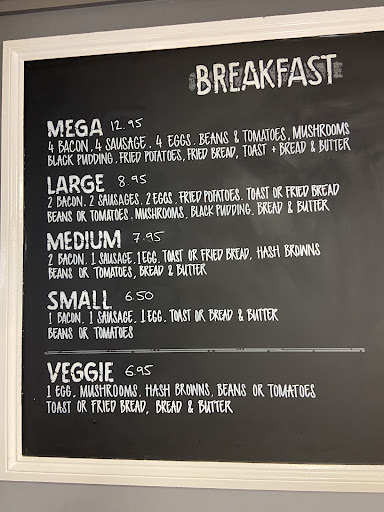 BREAKFAST
MEGA 12.95
4 BACON, 4 SAUSAGE, 4 EGGS, BEANS & TOMATOES, MUSHROOMS
BLACK PUDDING, FRIED POTATOES, FRIED BREAD, TOAST + BREAD & BUTTER
LARGE 8.95
2 BACON, 2 SAUSAGES, 2 EGGS, FRIED POTATOES, TOAST OR FRIED BREAD
BEANS OR TOMATOES, MUSHROOMS, BLACK PUDDING, BREAD & BUTTER
MEDIUM 7.95
2 BACON, 1 SAUSAGE, 1 EGG, TOAST OR FRIED BREAD, HASH BROWNS
BEANS OR TOMATOES, BREAD & BUTTER
SMALL 6.50
1 BACON, 1 SAUSAGE, 1 EGG, TOAST OR BREAD & BUTTER
BEANS OR TOMATOES
VEGGIE 6.95
1 EGG, MUSHROOMS, HASH BROWNS, BEANS OR TOMATOES
TOAST OR FRIED BREAD, BREAD & BUTTER